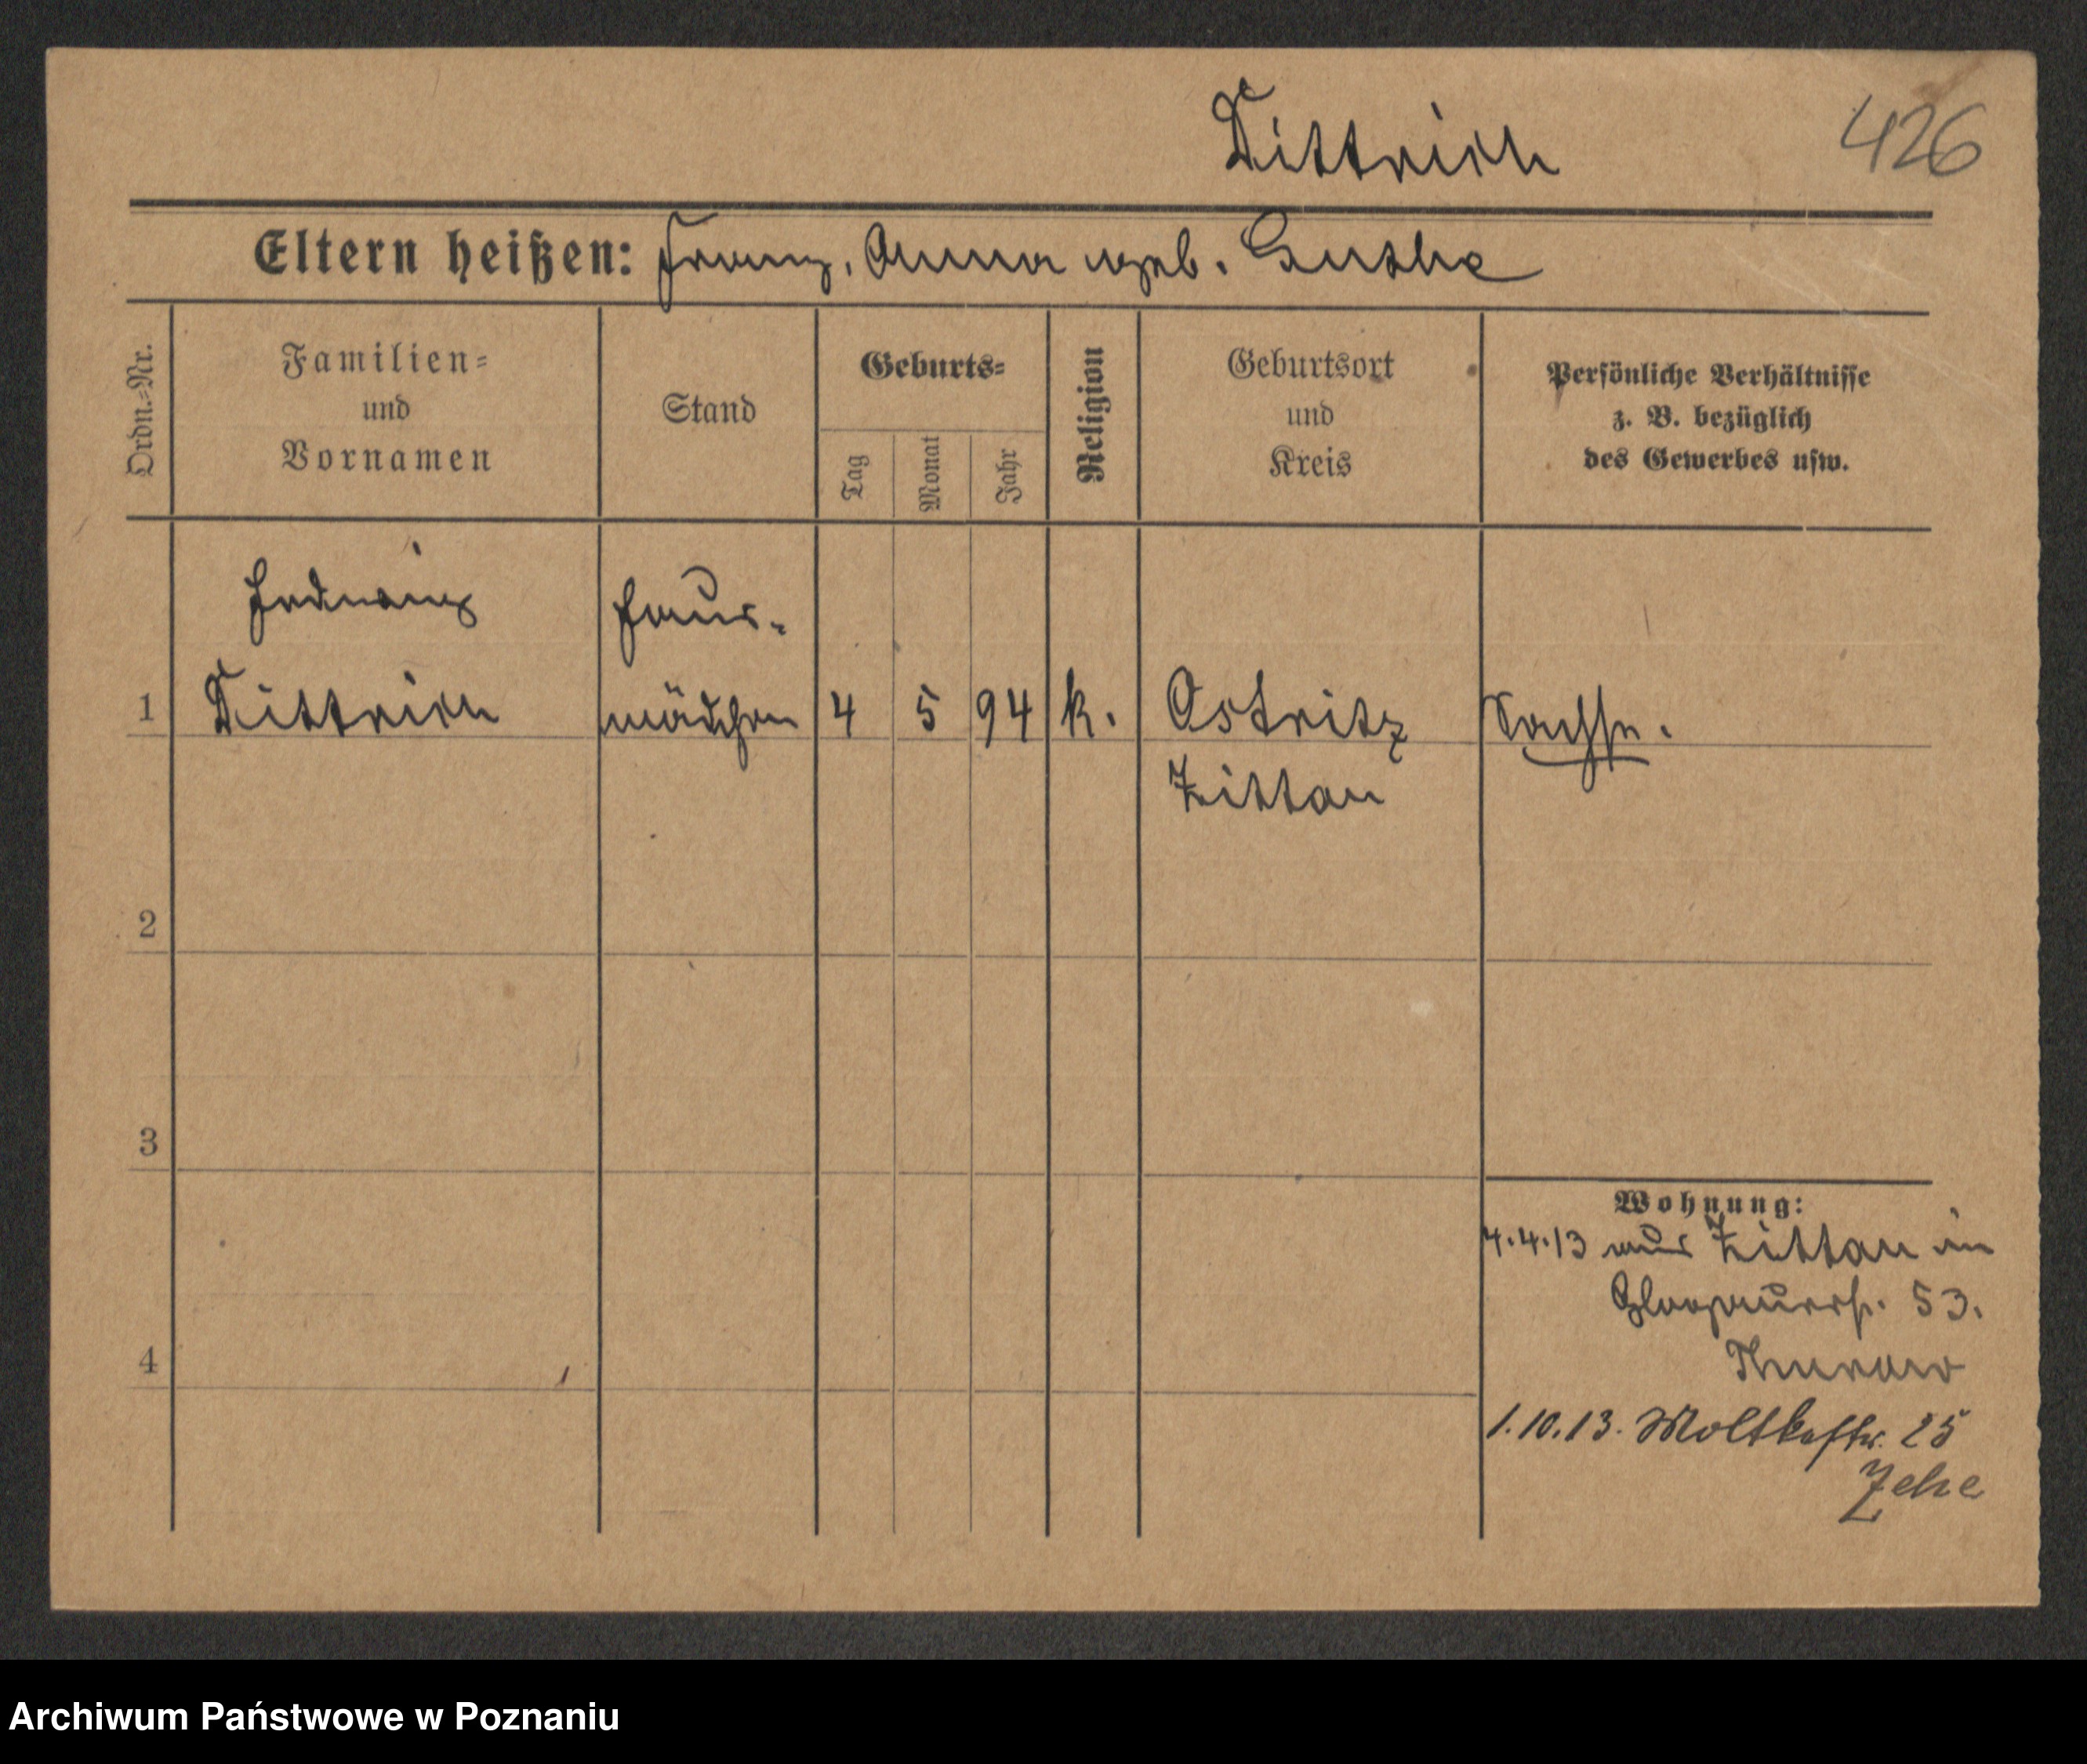 Dittrich
426
Eltern heißen: Franz, Anna geb. Guthe
Ordn.-Nr.
Familien-
und
Vornamen
Stand
Geburts-
Tag
Monat
Jahr
Religion
Geburtsort
und
Kreis
Persönliche Verhältnisse
z. B. bezüglich
des Gewerbes usw.
Hedwig
Haus-
1 Dittrich mädchen 4 5 94 k. Ostritz Sachse.
Zittau
2
3
4
Wohnung:
4.4.13 aus Zittau in
Glogauerstr. 53.
1.10.13. Moltkestr. 25
Zehe
Archiwum Państwowe w Poznaniu